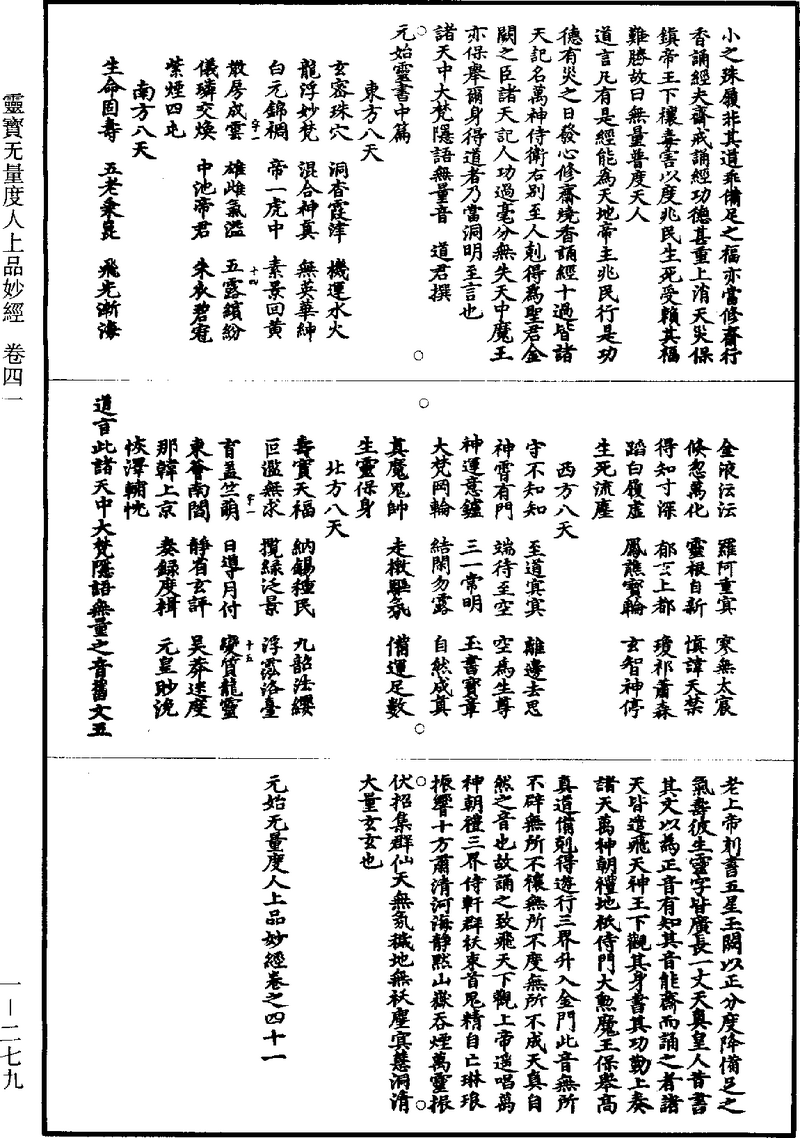 小之殊履非其道乖備足之福亦當修齋行
香誦經夫齋戒誦經功德甚重上消天災保
鎮帝王下禳毒害以度兆民生死受賴其福
難勝故曰無量普度天人
道言凡有是經能為天地帝主兆民行是功
德有災之日發心修齋燒香誦經十過皆諸
天記名萬神侍衛右別至人剋得為聖君金
闕之臣諸天記人功過毫分無失天中魔王
亦保舉爾身得道者乃當洞明至言也
諸天中大梵隱語無量音 道君撰
元始靈書中篇
東方八天
玄密珠穴 洞杳霞津 機運水火
龍浮妙梵 混合神真 無英華紳
白元錦裯 帝一虎中 素景回黃
散房成雲 雄雌氣溢 五露繽紛
儀璘交煥 中池帝君 朱衣碧宛
紫煙四屯
南方八天
生命固壽 五老秉昆 飛光漸海
金液泫泫 羅阿重冥 寒無太宸
倏忽萬化 靈根自新 慎諱天禁
得知寸深 郁云上都 瓊祁蕭森
蹈白履虛 鳳譙寶輪 玄智神停
生死流塵
西方八天
守不知知 至道冥冥 離邊去思
神霄有門 端待至空 空為生尊
神運意鑪 三一常明 玉書寶章
大梵罔輪 結閑勿露 自然成真
真魔鬼帥 走檄驅氛 備運足數
生靈保身
北方八天
壽寶天福 納錫種民 九韶法纓
叵濫無求 攬綠泛景 浮霧洛臺
育蓋竺萌 日導月付 變質龍靈
東詧南閻 靜省玄評 吳莽迷度
那韓上京 奏錄度楫 元皇眇浼
恢澤輔恍
道言此諸天中大梵隱語無量之音舊文五
老上帝刻書五星玉闕以正分度降備足之
氣壽彼生靈字皆廣長一丈天真皇人昔書
其文以為正音有知其音能齋而誦之者諸
天皆遣飛天神王下觀其身書其功勤上奏
諸天萬神朝禮地祇侍門大勳魔王保舉高
真道備剋得遊行三界升入金門此音無所
不辟無所不禳無所不度無所不成天真自
然之音也故誦之致飛天下觀上帝遥唱萬
神朝禮三界侍軒群妖束首鬼精自亡琳琅
振響十方肅清河海靜默山嶽吞煙萬靈振
伏招集群仙天無氛穢地無祅塵冥慧洞清
大量玄玄也
元始无量度人上品妙經卷之四十一
靈寶无量度人上品妙經 卷四一
一－二七九